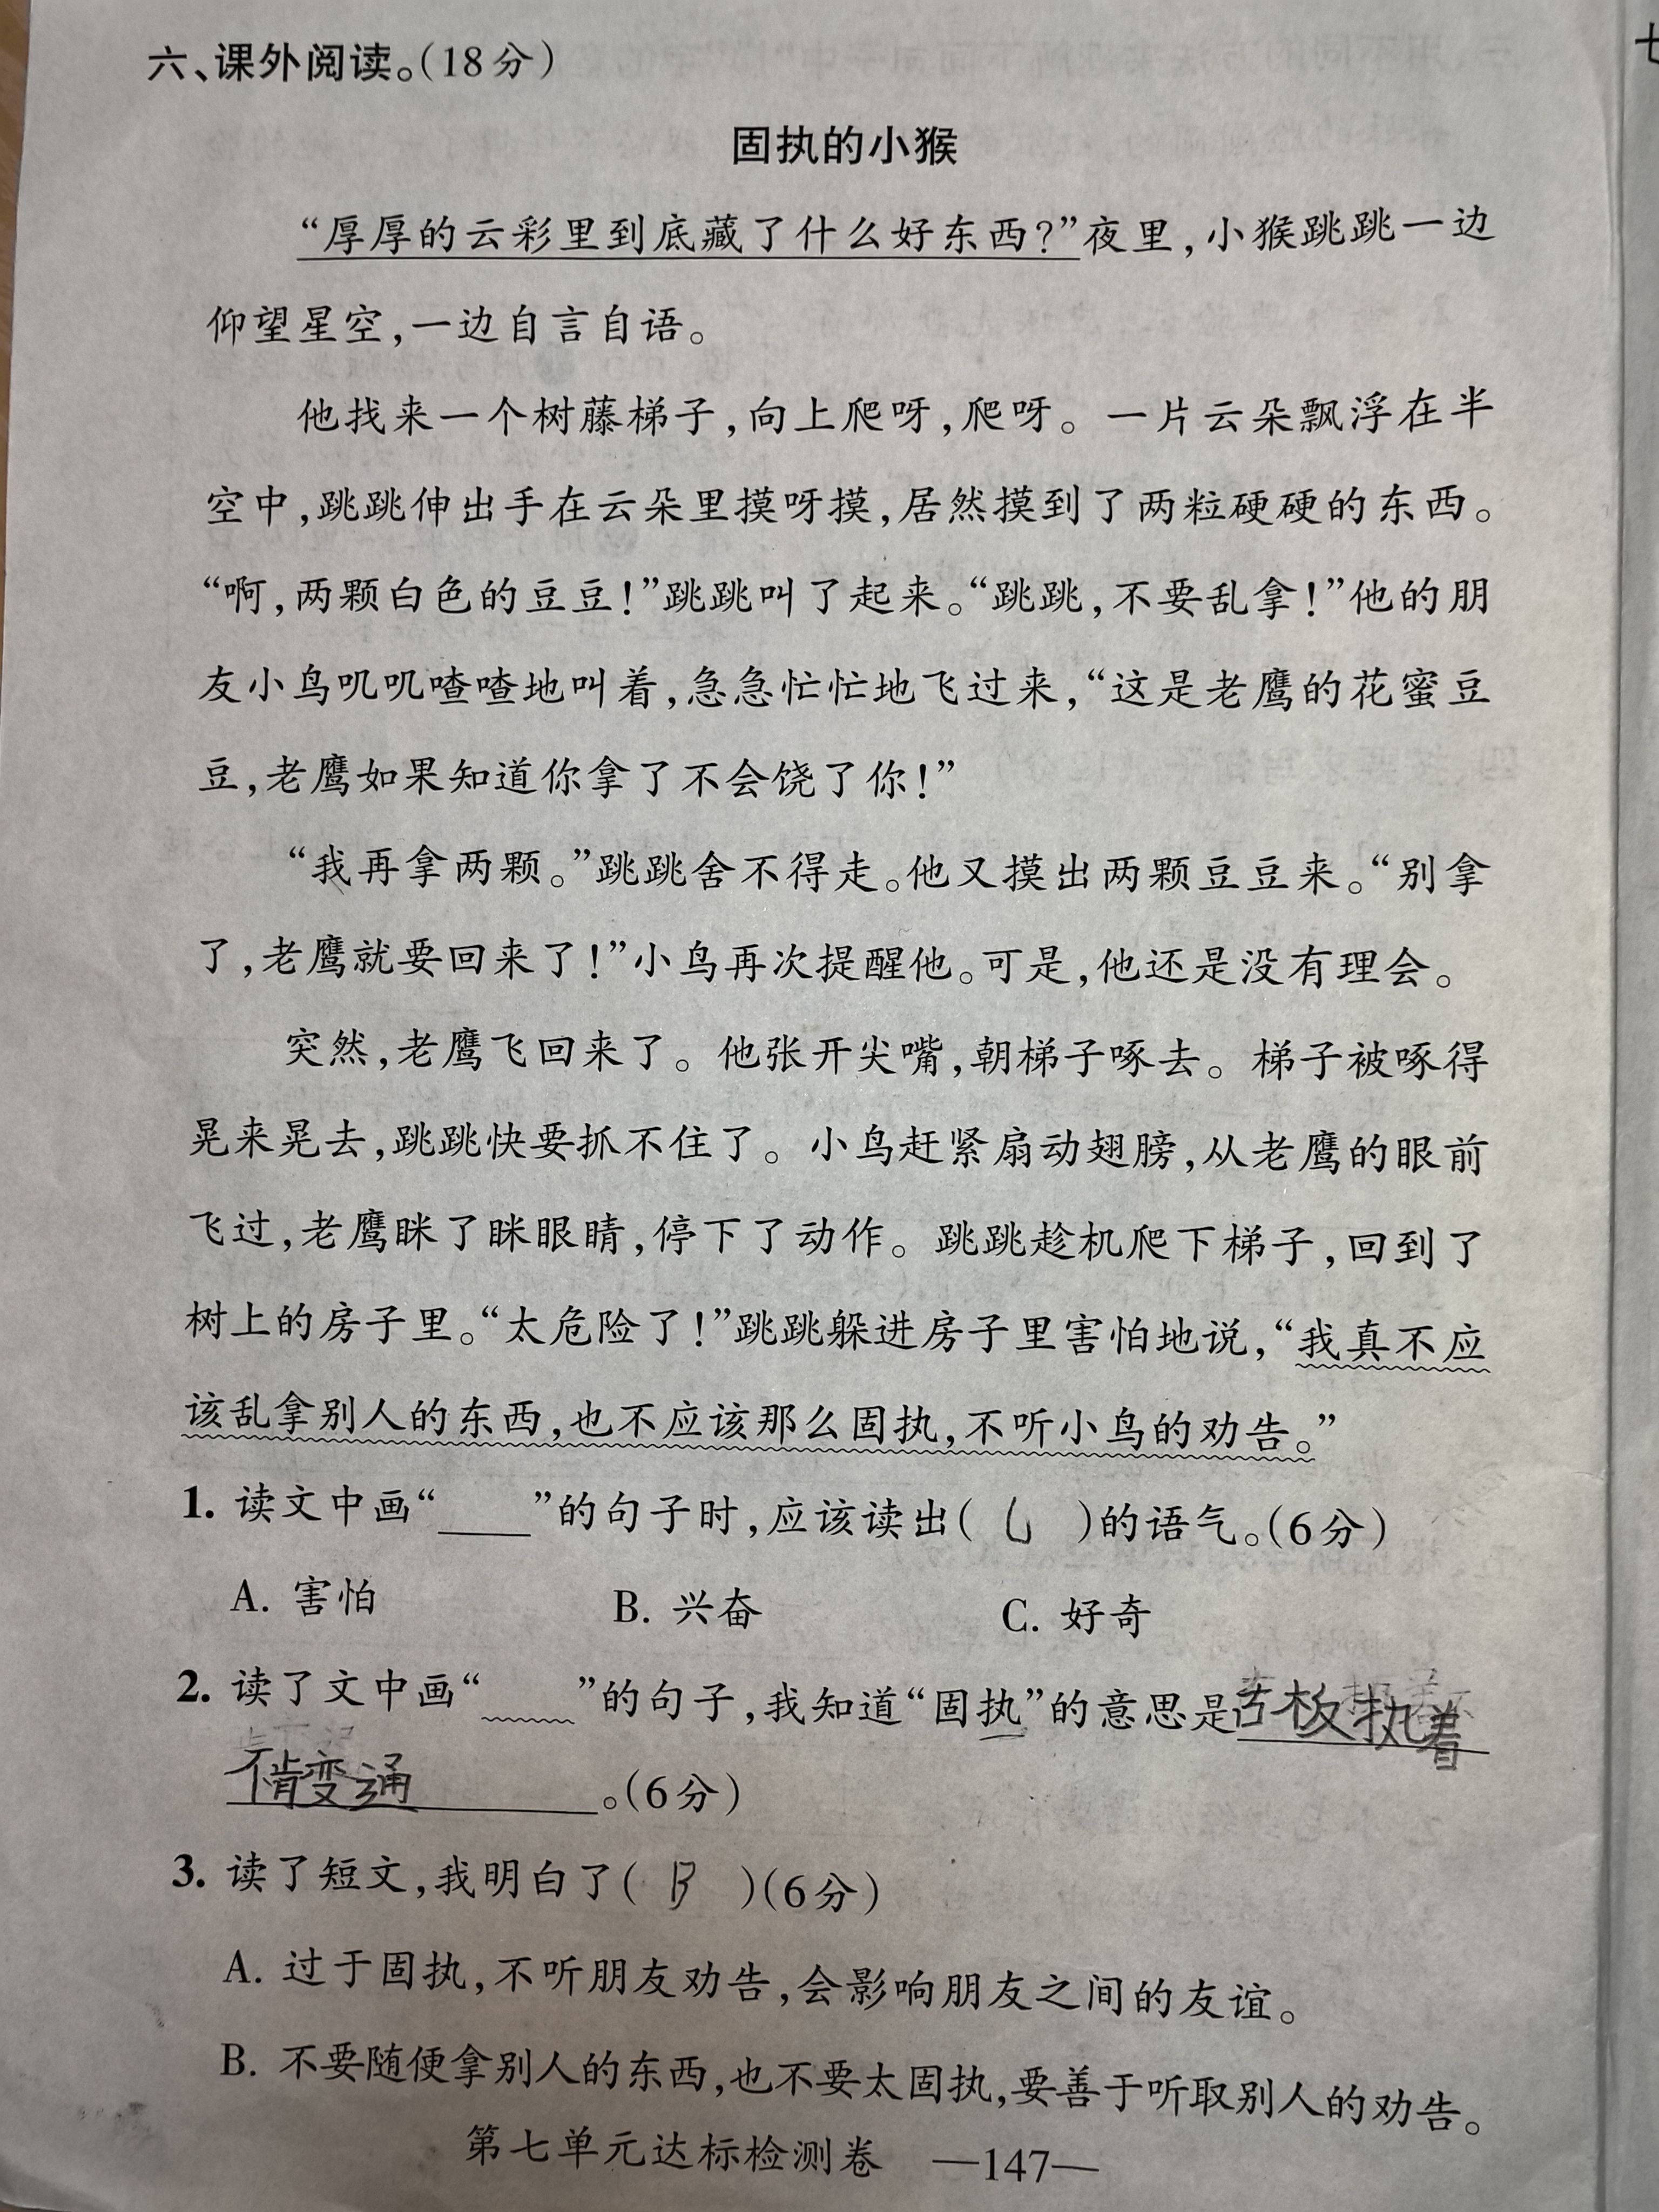 六、课外阅读。(18分)
固执的小猴
“厚厚的云彩里到底藏了什么好东西?”夜里,小猴跳跳一边
仰望星空,一边自言自语。
他找来一个树藤梯子,向上爬呀,爬呀。一片云朵飘浮在半
空中,跳跳伸出手在云朵里摸呀摸,居然摸到了两粒硬硬的东西。
“啊,两颗白色的豆豆!”跳跳叫了起来。“跳跳,不要乱拿!”他的朋
友小鸟叽叽喳喳地叫着,急急忙忙地飞过来,“这是老鹰的花蜜豆
豆,老鹰如果知道你拿了不会饶了你!”
“我再拿两颗。”跳跳舍不得走。他又摸出两颗豆豆来。“别拿
了,老鹰就要回来了!”小鸟再次提醒他。可是,他还是没有理会。
突然,老鹰飞回来了。他张开尖嘴,朝梯子啄去。梯子被啄得
晃来晃去,跳跳快要抓不住了。小鸟赶紧扇动翅膀,从老鹰的眼前
飞过,老鹰眯了眯眼睛,停下了动作。跳跳趁机爬下梯子,回到了
树上的房子里。“太危险了!”跳跳躲进房子里害怕地说,“我真不应
该乱拿别人的东西,也不应该那么固执,不听小鸟的劝告。”
1. 读文中画“____”的句子时,应该读出( C )的语气。(6分)
A. 害怕 B. 兴奋 C. 好奇
2. 读了文中画“﹏﹏”的句子,我知道“固执”的意思是古板执着
不肯变通。(6分)
3. 读了短文,我明白了( B )(6分)
A. 过于固执,不听朋友劝告,会影响朋友之间的友谊。
B. 不要随便拿别人的东西,也不要太固执,要善于听取别人的劝告。
第七单元达标检测卷 —147—